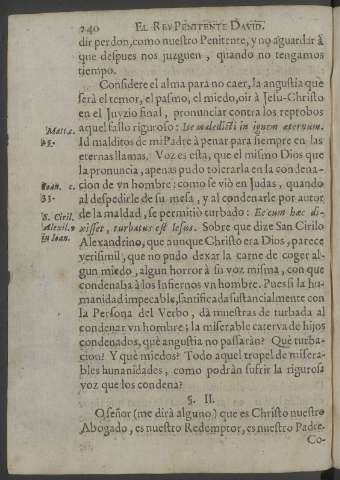 240 EL REY PENITENTE DAVID.
dir perdon, como nuestro Penitente, y no aguardar à
que despues nos juzguen, quando no tengamos
tiempo.
Considere el alma para no caer, la angustia què
serà el temor, el pasmo, el miedo, oir à Jesu-Christo
en el Juyzio final, pronunciar contra los reprobos
Matt. c.
aquel fallo riguroso: Ite maledicti in ignem æternum.
Id malditos de mi Padre à penar para siempre en las
eternas llamas. Voz es esta, que el mismo Dios que
la pronuncia, apenas pudo tolerarla en la condena-
Joan. c.
cion de vn hombre; como se viò en Judas, quando
al despedirle de su mesa, y al condenarle por autor
de la maldad, se permitiò turbado: Et cum hæc di-
S. Ciril.
Alexā.
in Joan.
xisset, turbatus est Iesus. Sobre que dize San Cirilo
Alexandrino, que aunque Christo era Dios, parece
verisimil, que no pudo dexar la carne de coger al-
gun miedo, algun horror à su voz misma, con que
condenaba à los Infiernos vn hombre. Pues si la hu-
manidad impecable, santificada sustancialmente con
la Persona del Verbo, dà muestras de turbada al
condenar vn hombre; la miserable caterva de hijos
condenados, què angustia no passaràn? Què turba-
cion? Y què miedos? Todo aquel tropel de misera-
bles humanidades, como podràn sufrir la rigurosa
voz que los condena?
§. II.
O señor (me dirà alguno) que es Christo nuestro
Abogado, es nuestro Redemptor, es nuestro Padre.
Co-